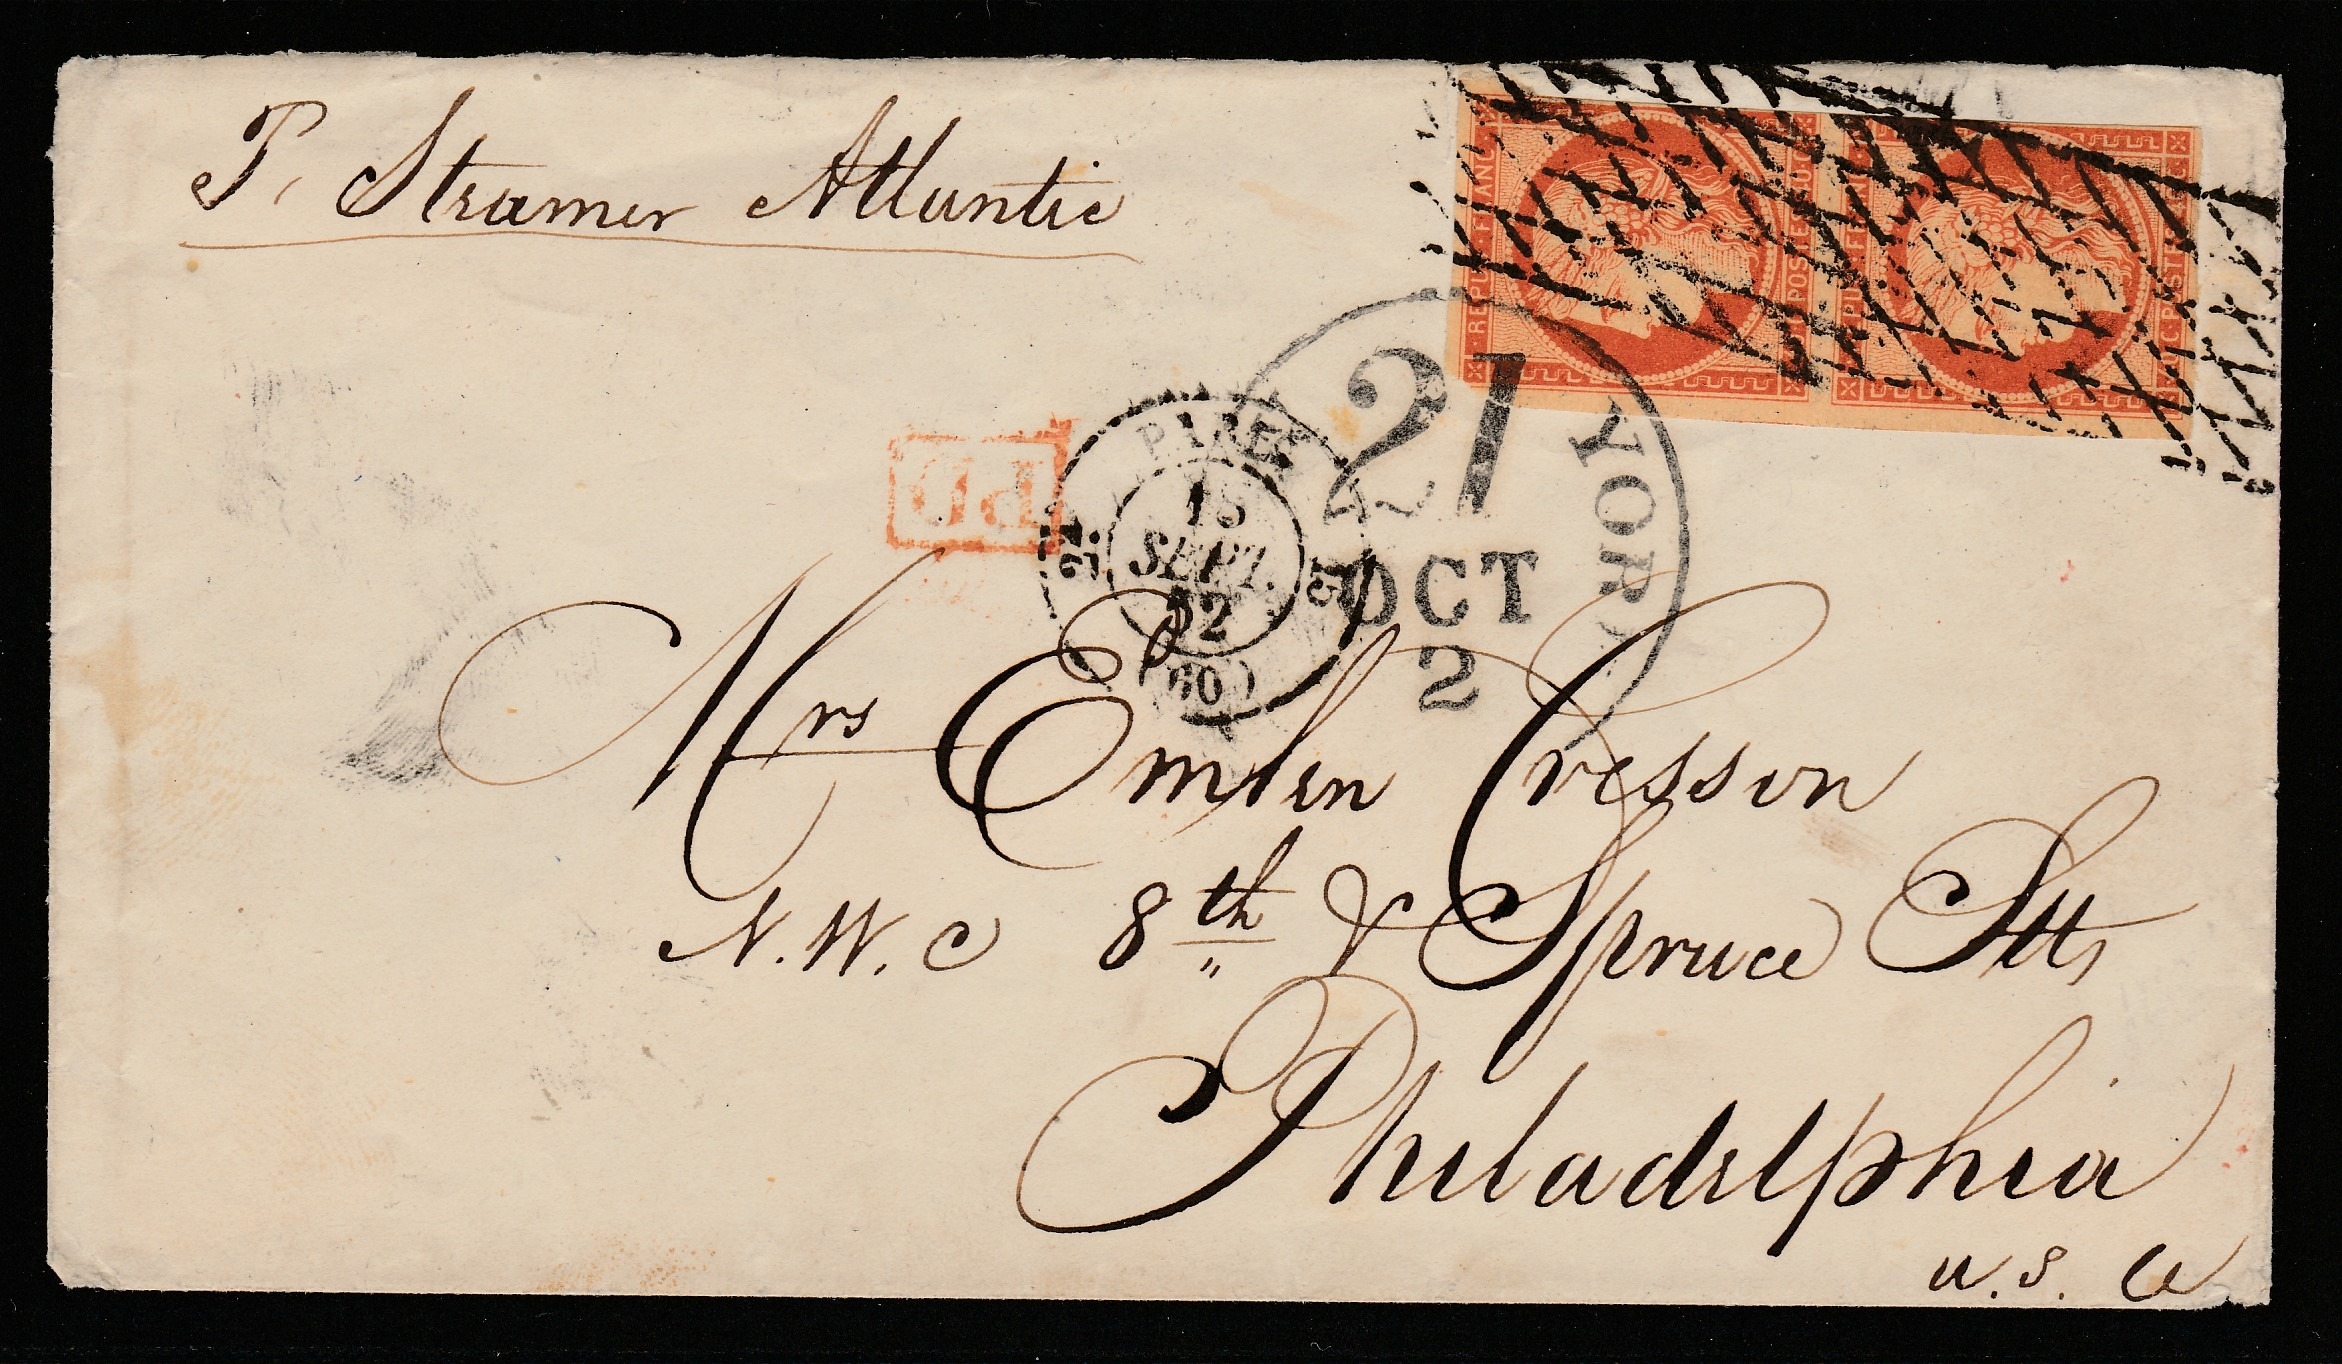 P. Steamer Atlantic
REPUB. FRANC.
POSTES
REPUB. FRANC.
POSTES
PD
PARIS
15
SEPT.
52
(60)
YORK
21
OCT
2
Mrs Emlen Cresson
N.W.C 8th & Spruce Sts
Philadelphia
U.S.A